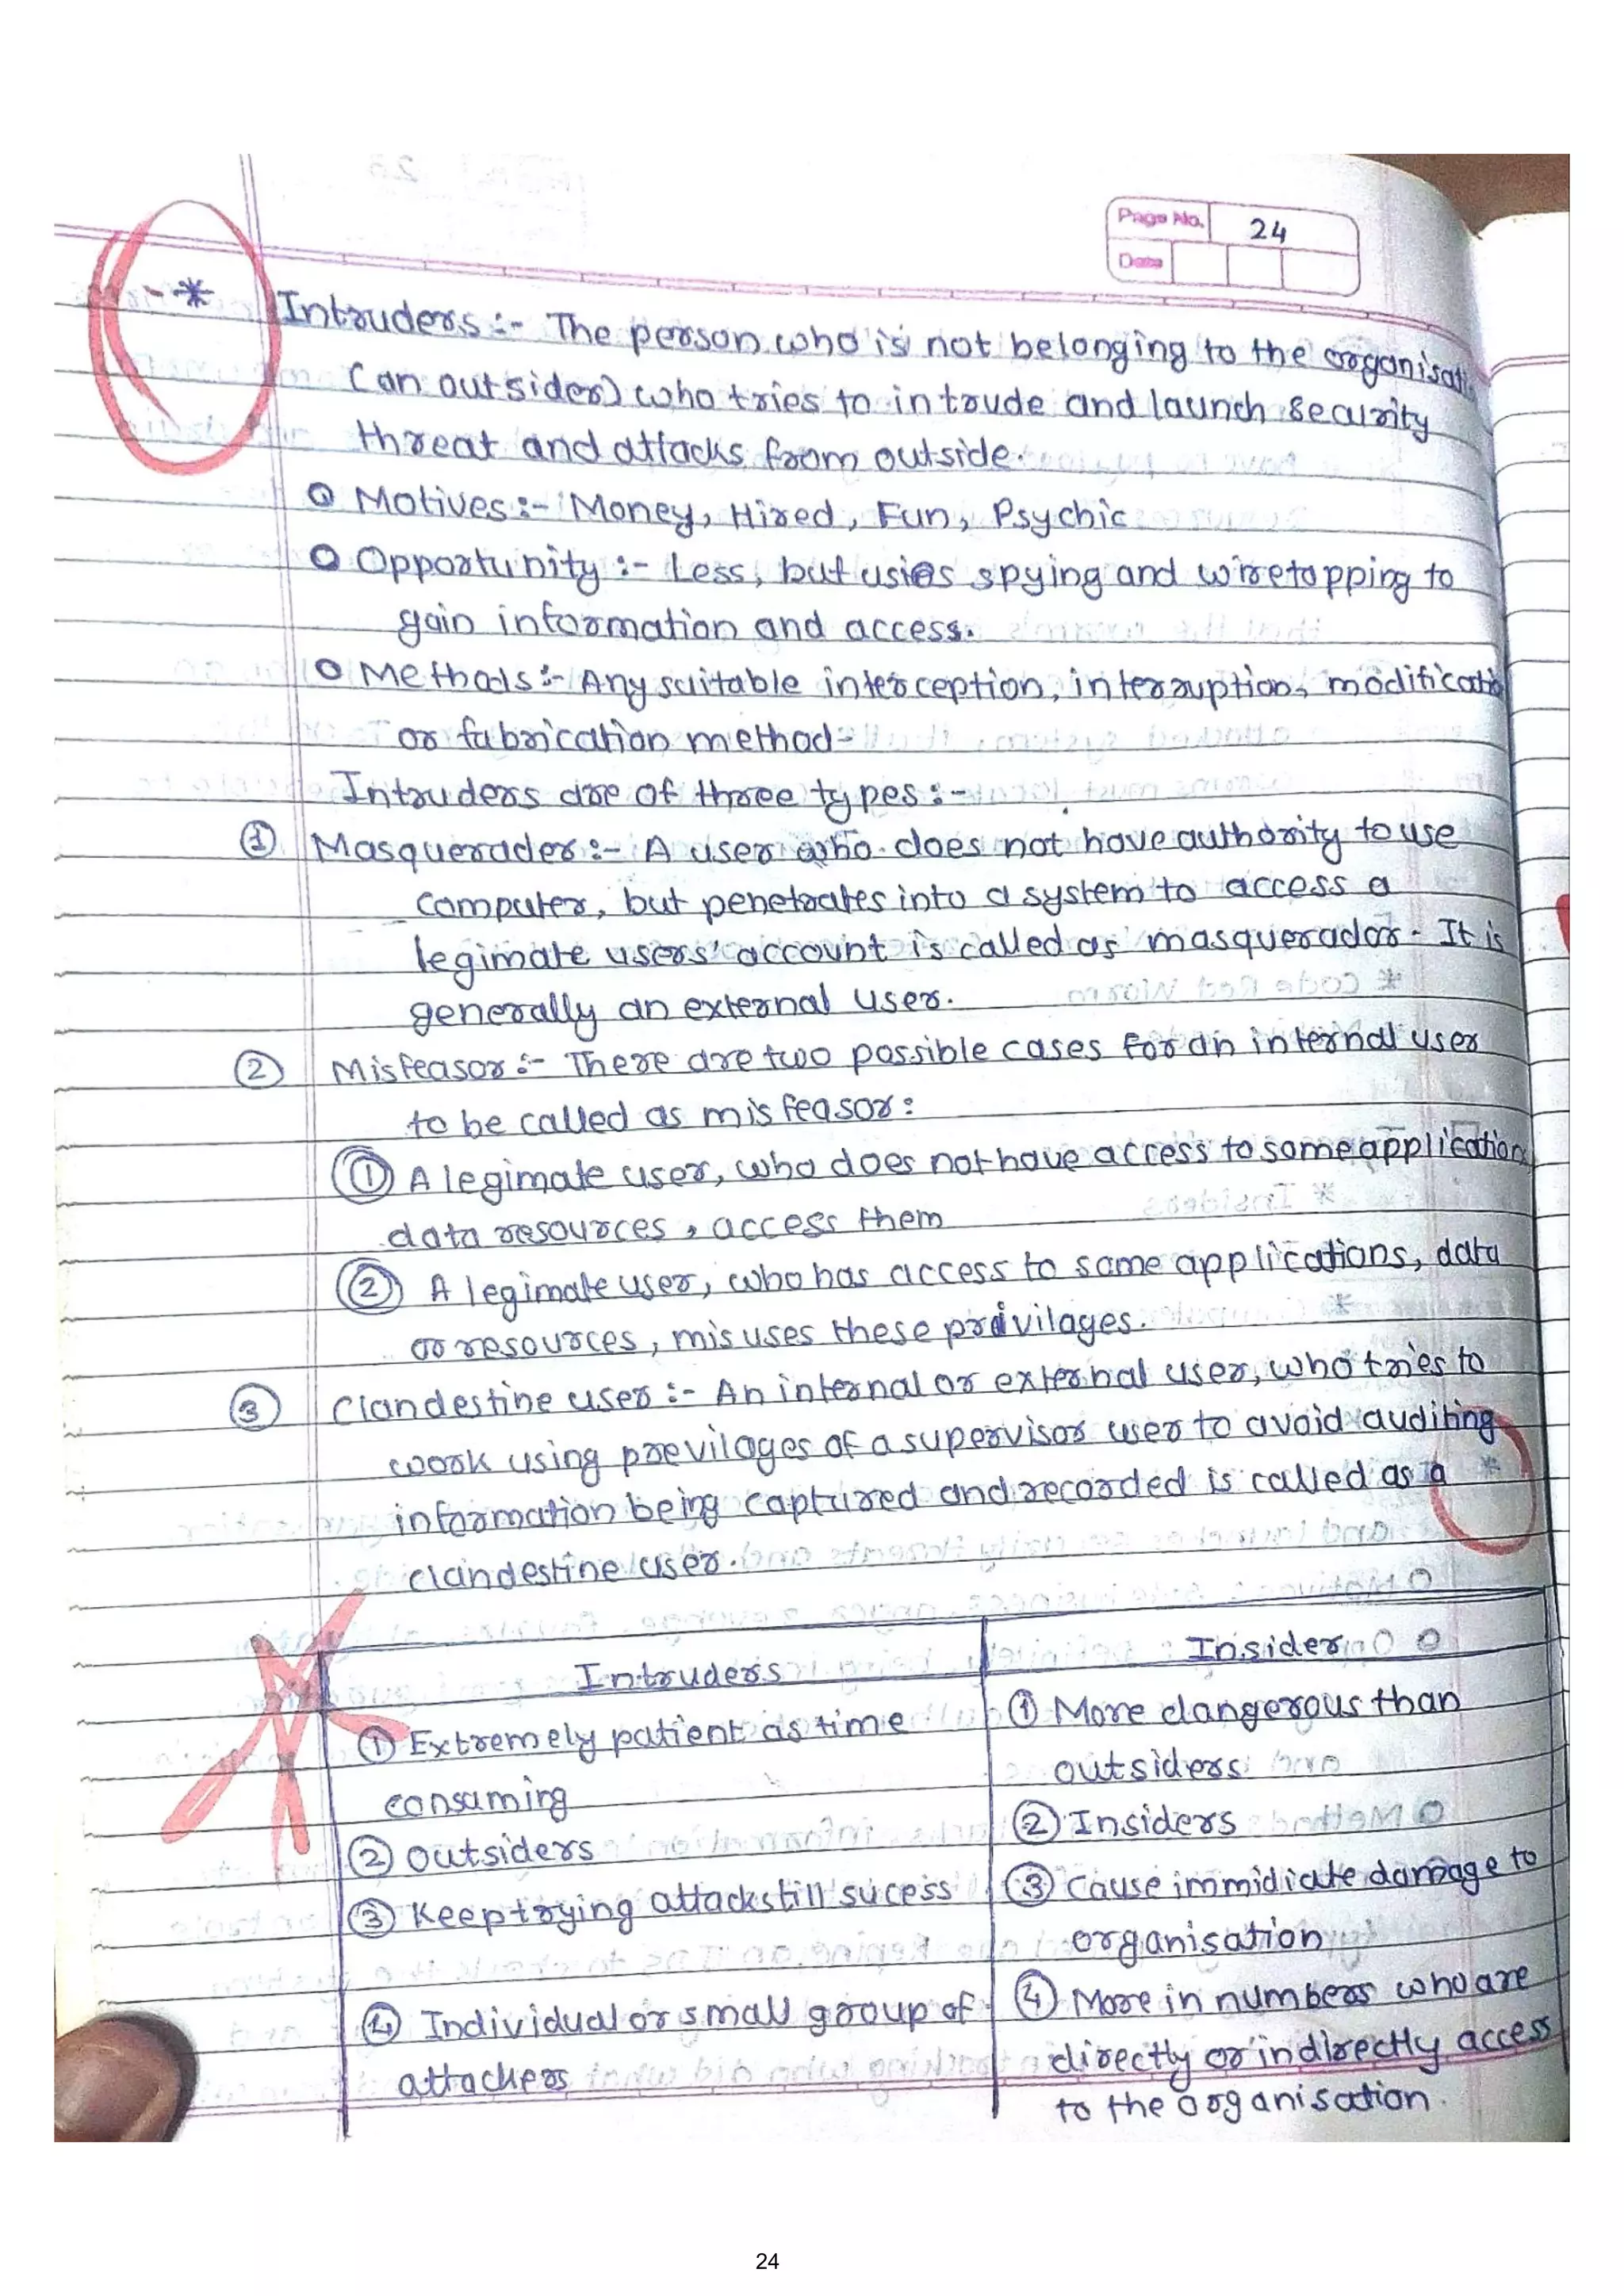 Page No. 24
Date
- * Intruders :- The person who is not belonging to the organisati
(an outsider) who tries to intrude and launch security
threat and attacks from outside.
o Motives :- Money, Hired, Fun, Psychic
o Opportunity :- Less, but usies spying and wiretapping to
gain information and access.
o Methods :- Any suitable interception, interruption, modificatio
or fabrication method-
Intruders are of three types :-
1 Masquerader :- A user who does not have authority to use
computer, but penetrates into a system to access a
legimate users' account is called as masquerador. It is
generally an external user.
2 Misfeasor :- There are two possible cases for an internal user
to be called as misfeasor :
1 A legimate user, who does not have access to some application
data resources, access them
2 A legimate user, who has access to some applications, data
or resources, misuses these privilages.
3 Clandestine user :- An internal or external user, who tries to
work using previlages of a supervisor user to avoid auditing
information being captured and recorded is called as a
clandestine user.
Intruders Insider
1 Extremely patient as time 1 More dangerous than
consuming outsiders
2 outsiders 2 Insiders
3 Keep trying attacks till sucess 3 Cause immidiate damage to
organisation
4 Individual or small group of 4 More in numbers who are
attackers directly or indirectly access
to the organisation.
24